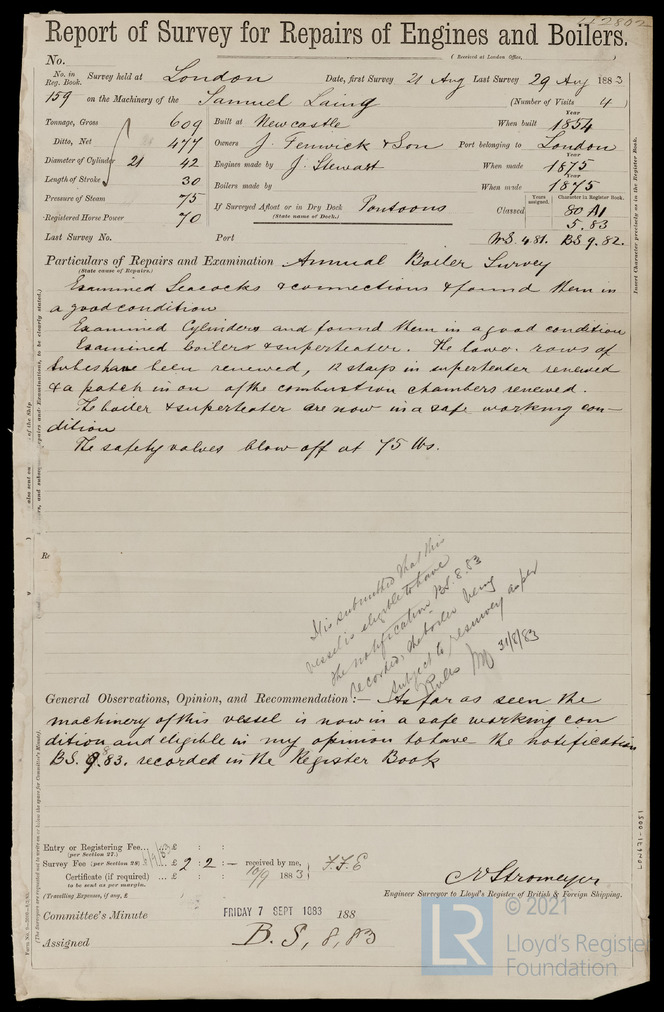 Report of Survey for Repairs of Engines and Boilers.
No. (Received at London Office,
No. in Reg. Book. Survey held at London Date, first Survey 21 Aug Last Survey 29 Aug 1883
159 on the Machinery of the Samuel Laing (Number of Visits 4)
Tonnage, Gross 609 Built at Newcastle When built Year 1854
Ditto, Net 477 Owners J. Fenwick & Son Port belonging to London
Diameter of Cylinder 21 42 Engines made by J. Stewart When made Year 1875
Length of Stroke 30 Boilers made by When made Year 1875
Pressure of Steam 75 If Surveyed Afloat or in Dry Dock Pontoons
(State name of Dock.)
Classed Years assigned. Character in Register Book. 80 A1
5.83
Registered Horse Power 70
Last Survey No. Port M.S. 4.81. B.S 9.82.
Particulars of Repairs and Examination Annual Boiler Survey
(State cause of Repairs.)
Examined Seacocks & connections & found them in
a good condition
Examined Cylinders and found them in a good condition
Examined boilers & superheater. The lower rows of
tubes have been renewed, 12 stays in superheater renewed
& a patch in on of the combustion chambers renewed.
The boiler & superheater are now in a safe working con-
dition
The safety valves blow off at 75 lbs.
It is submitted that this
vessel is eligible to have
the notification B.S. 8.83
recorded, the boiler being
subject to resurvey as per
Rules 31/8/83
General Observations, Opinion, and Recommendation :— As far as seen the
machinery of this vessel is now in a safe working con
dition and eligible in my opinion to have the notification
B.S. 8.83. recorded in the Register Book
Entry or Registering Fee... £ : :
(per Section 27.)
Survey Fee (per Section 28) ... £ 2 : 2 : — received by me,
Certificate (if required) ... £ : : 10/9 1883
(to be sent as per margin.
(Travelling Expenses, if any, £
Engineer Surveyor to Lloyd's Register of British & Foreign Shipping.
Committee's Minute FRIDAY 7 SEPT 1883 188
Assigned B.S, 8,83
Insert Character precisely as in the Register Book.
LON671-0051
LR
© 2021
Lloyd's Register
Foundation